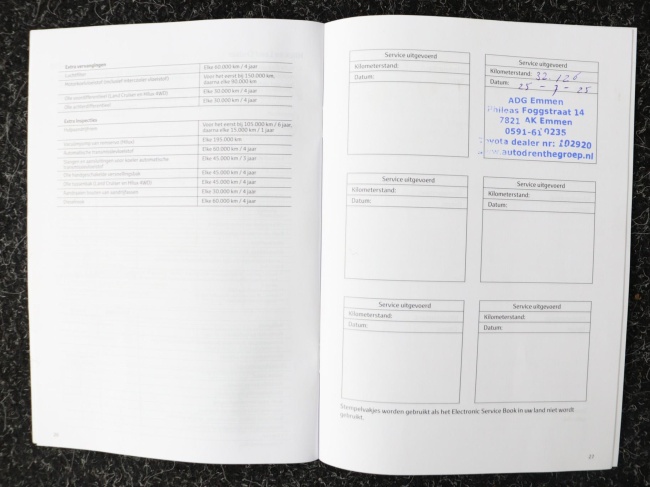 Extra vervangingen
Luchtfilter Elke 60.000 km / 4 jaar
Motorkoelvloeistof (inclusief intercooler vloeistof) Voor het eerst bij 150.000 km,
daarna elke 90.000 km
Olie voordifferentieel (Land Cruiser en Hilux AWD) Elke 30.000 km / 4 jaar
Olie achterdifferentieel Elke 30.000 km / 4 jaar
Extra inspecties
Hulpaandrijfriem Voor het eerst bij 105.000 km / 6 jaar,
daarna elke 15.000 km / 1 jaar
Elke 195.000 km
Automatische transmissievloeistof Elke 60.000 km / 4 jaar
Elke 45.000 km / 3 jaar
Elke 45.000 km / 4 jaar
Olie tussenbak (Land Cruiser en Hilux AWD) Elke 45.000 km / 4 jaar
Elke 30.000 km / 4 jaar
Elke 80.000 km / 4 jaar
Service uitgevoerd
Kilometerstand:
Datum:
Service uitgevoerd
Kilometerstand: 32.126
Datum: 25 - 7 - 25
ADG Emmen
Phileas Foggstraat 14
7821 AK Emmen
0591-619235
Toyota dealer nr: 102920
www.autodrenthegroep.nl
Service uitgevoerd
Kilometerstand:
Datum:
Service uitgevoerd
Kilometerstand:
Datum:
Service uitgevoerd
Kilometerstand:
Datum:
Service uitgevoerd
Kilometerstand:
Datum:
Stempelvakjes worden gebruikt als het Electronic Service Book in uw land niet wordt
gebruikt.
21